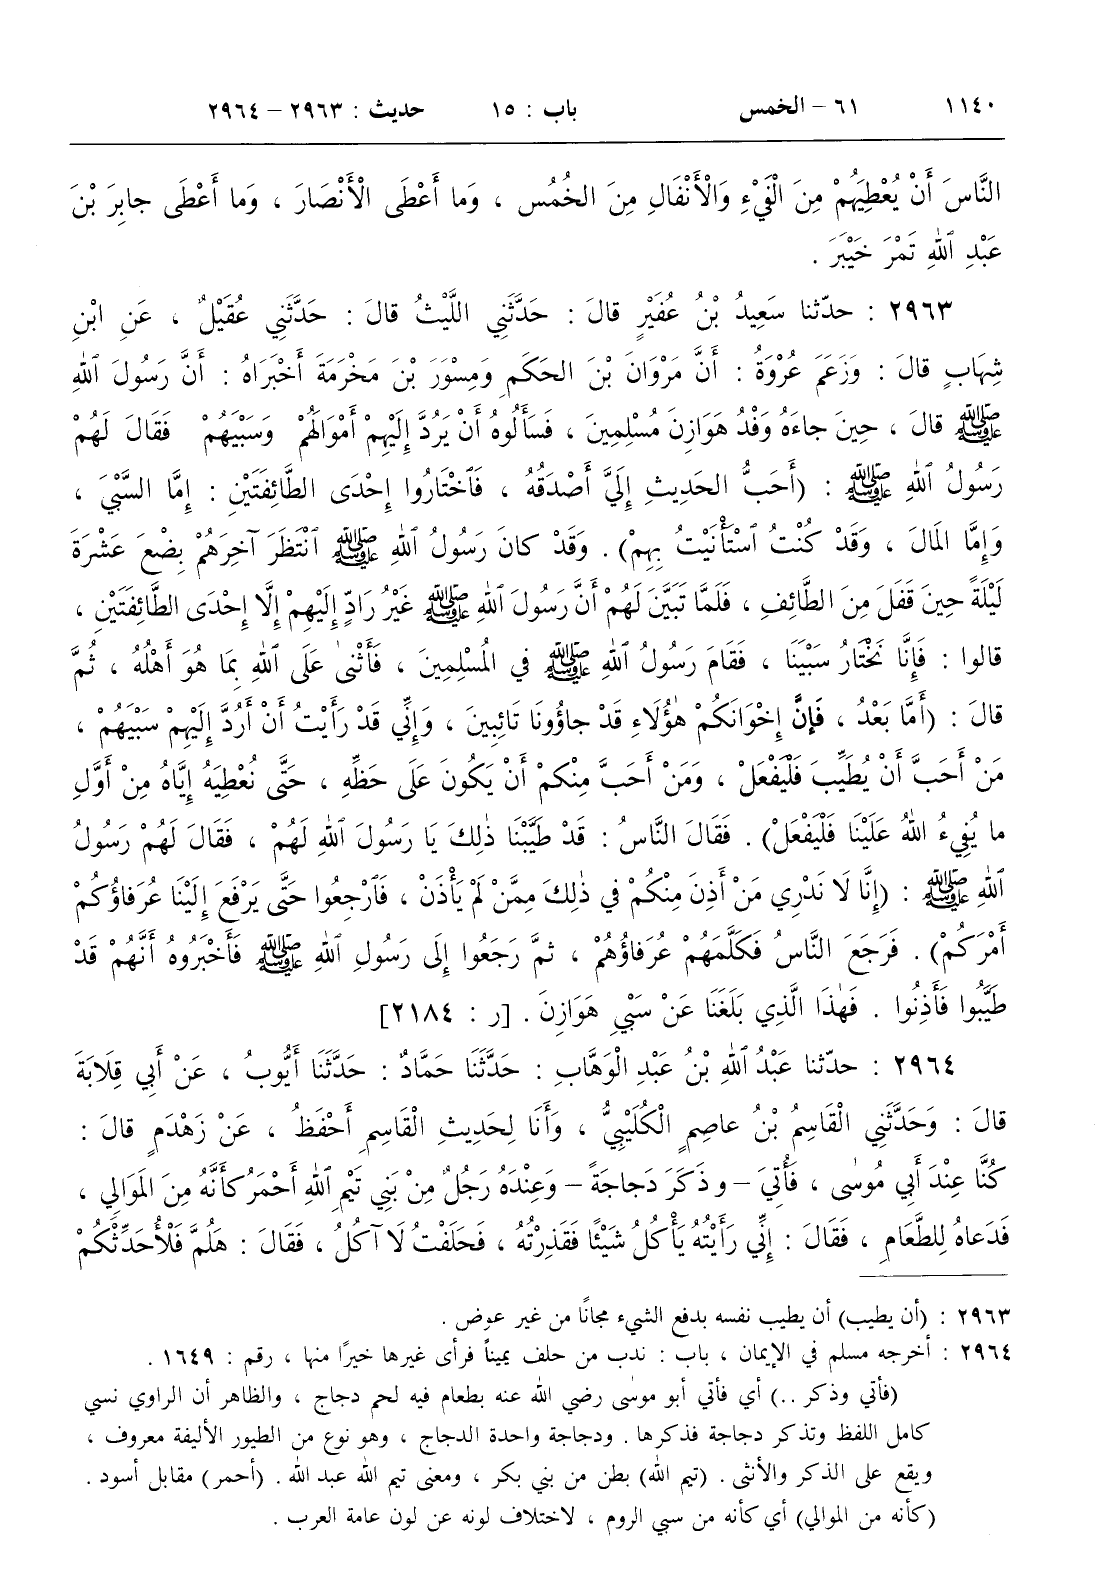 ١١٤٠ ٦١ – الخمس باب : ١٥ حديث : ٢٩٦٣ – ٢٩٦٤
النَّاسَ أَنْ يُعْطِيَهُمْ مِنَ الْفَيْءِ وَالْأَنْفَالِ مِنَ الخُمُسِ ، وَما أَعْطَى الْأَنْصَارَ ، وَما أَعْطَى جابِرَ بْنَ
عَبْدِ ٱللهِ تَمْرَ خَيْبَرَ .
٢٩٦٣ : حدّثنا سَعِيدُ بْنُ عُفَيْرٍ قالَ : حَدَّثَنِي اللَّيْثُ قالَ : حَدَّثَنِي عُقَيْلٌ ، عَنِ ابْنِ
شِهَابٍ قالَ : وَزَعَمَ عُرْوَةُ : أَنَّ مَرْوَانَ بْنَ الحَكَمِ وَمِسْوَرَ بْنَ مَخْرَمَةَ أَخْبَرَاهُ : أَنَّ رَسُولَ ٱللهِ
ﷺ قالَ ، حِينَ جاءَهُ وَفْدُ هَوَازِنَ مُسْلِمِينَ ، فَسَأَلُوهُ أَنْ يَرُدَّ إِلَيْهِمْ أَمْوَالَهُمْ وَسَبْيَهُمْ فَقَالَ لَهُمْ
رَسُولُ ٱللهِ ﷺ : (أَحَبُّ الحَدِيثِ إِلَيَّ أَصْدَقُهُ ، فَٱخْتَارُوا إِحْدَى الطَّائِفَتَيْنِ : إِمَّا السَّبْيَ ،
وَإِمَّا المَالَ ، وَقَدْ كُنْتُ ٱسْتَأْنَيْتُ بِهِمْ) . وَقَدْ كانَ رَسُولُ ٱللهِ ﷺ ٱنْتَظَرَ آخِرَهُمْ بِضْعَ عَشْرَةَ
لَيْلَةً حِينَ قَفَلَ مِنَ الطَّائِفِ ، فَلَمَّا تَبَيَّنَ لَهُمْ أَنَّ رَسُولَ ٱللهِ ﷺ غَيْرُ رَادٍّ إِلَيْهِمْ إِلَّا إِحْدَى الطَّائِفَتَيْنِ ،
قالوا : فَإِنَّا نَخْتَارُ سَبْيَنَا ، فَقَامَ رَسُولُ ٱللهِ ﷺ في المُسْلِمِينَ ، فَأَثْنىٰ عَلَى ٱللهِ بِمَا هُوَ أَهْلُهُ ، ثُمَّ
قالَ : (أَمَّا بَعْدُ ، فَإِنَّ إِخْوَانَكُمْ هٰؤُلَاءِ قَدْ جاؤُونَا تَائِبِينَ ، وَإِنِّي قَدْ رَأَيْتُ أَنْ أَرُدَّ إِلَيْهِمْ سَبْيَهُمْ ،
مَنْ أَحَبَّ أَنْ يُطَيِّبَ فَلْيَفْعَلْ ، وَمَنْ أَحَبَّ مِنْكُمْ أَنْ يَكُونَ عَلَى حَظِّهِ ، حَتَّى نُعْطِيَهُ إِيَّاهُ مِنْ أَوَّلِ
ما يُفِيءُ اللهُ عَلَيْنَا فَلْيَفْعَلْ) . فَقَالَ النَّاسُ : قَدْ طَيَّبْنَا ذٰلِكَ يَا رَسُولَ ٱللهِ لَهُمْ ، فَقَالَ لَهُمْ رَسُولُ
ٱللهِ ﷺ : (إِنَّا لَا نَدْرِي مَنْ أَذِنَ مِنْكُمْ في ذٰلِكَ مِمَّنْ لَمْ يَأْذَنْ ، فَٱرْجِعُوا حَتَّى يَرْفَعَ إِلَيْنَا عُرَفاؤُكُمْ
أَمْرَكُمْ) . فَرَجَعَ النَّاسُ فَكَلَّمَهُمْ عُرَفاؤُهُمْ ، ثمَّ رَجَعُوا إِلَى رَسُولِ ٱللهِ ﷺ فَأَخْبَرُوهُ أَنَّهُمْ قَدْ
طَيَّبُوا فَأَذِنُوا . فَهٰذَا الَّذِي بَلَغَنَا عَنْ سَبْيِ هَوَازِنَ . [ر : ٢١٨٤]
٢٩٦٤ : حدّثنا عَبْدُ ٱللهِ بْنُ عَبْدِ الْوَهَّابِ : حَدَّثَنَا حَمَّادٌ : حَدَّثَنَا أَيُّوبُ ، عَنْ أَبِي قِلَابَةَ
قالَ : وَحَدَّثَنِي الْقَاسِمُ بْنُ عاصِمٍ الْكُلَيْبِيُّ ، وَأَنَا لِحَدِيثِ الْقَاسِمِ أَحْفَظُ ، عَنْ زَهْدَمٍ قالَ :
كُنَّا عِنْدَ أَبِي مُوسٰى ، فَأُتِيَ – وذَكَرَ دَجاجَةً – وَعِنْدَهُ رَجُلٌ مِنْ بَنِي تَيْمِ ٱللهِ أَحْمَرُ كأَنَّهُ مِنَ المَوَالِي ،
فَدَعاهُ لِلطَّعَامِ ، فَقَالَ : إِنِّي رَأَيْتُهُ يَأْكُلُ شَيْئًا فَقَذِرْتُهُ ، فَحَلَفْتُ لَا آكُلُ ، فَقَالَ : هَلُمَّ فَلْأُحَدِّثْكُمْ
٢٩٦٣ : (أن يطيب) أن يطيب نفسه بدفع الشيء مجانًا من غير عوض .
٢٩٦٤ : أخرجه مسلم في الإيمان ، باب : ندب من حلف يميناً فرأى غيرها خيرًا منها ، رقم : ١٦٤٩ .
(فأتي وذكر ..) أي فأتي أبو موسى رضي الله عنه بطعام فيه لحم دجاج ، والظاهر أن الراوي نسي
كامل اللفظ وتذكر دجاجة فذكرها . ودجاجة واحدة الدجاج ، وهو نوع من الطيور الأليفة معروف ،
ويقع على الذكر والأنثى . (تيم الله) بطن من بني بكر ، ومعنى تيم الله عبد الله . (أحمر) مقابل أسود .
(كأنه من الموالي) أي كأنه من سبي الروم ، لاختلاف لونه عن لون عامة العرب .